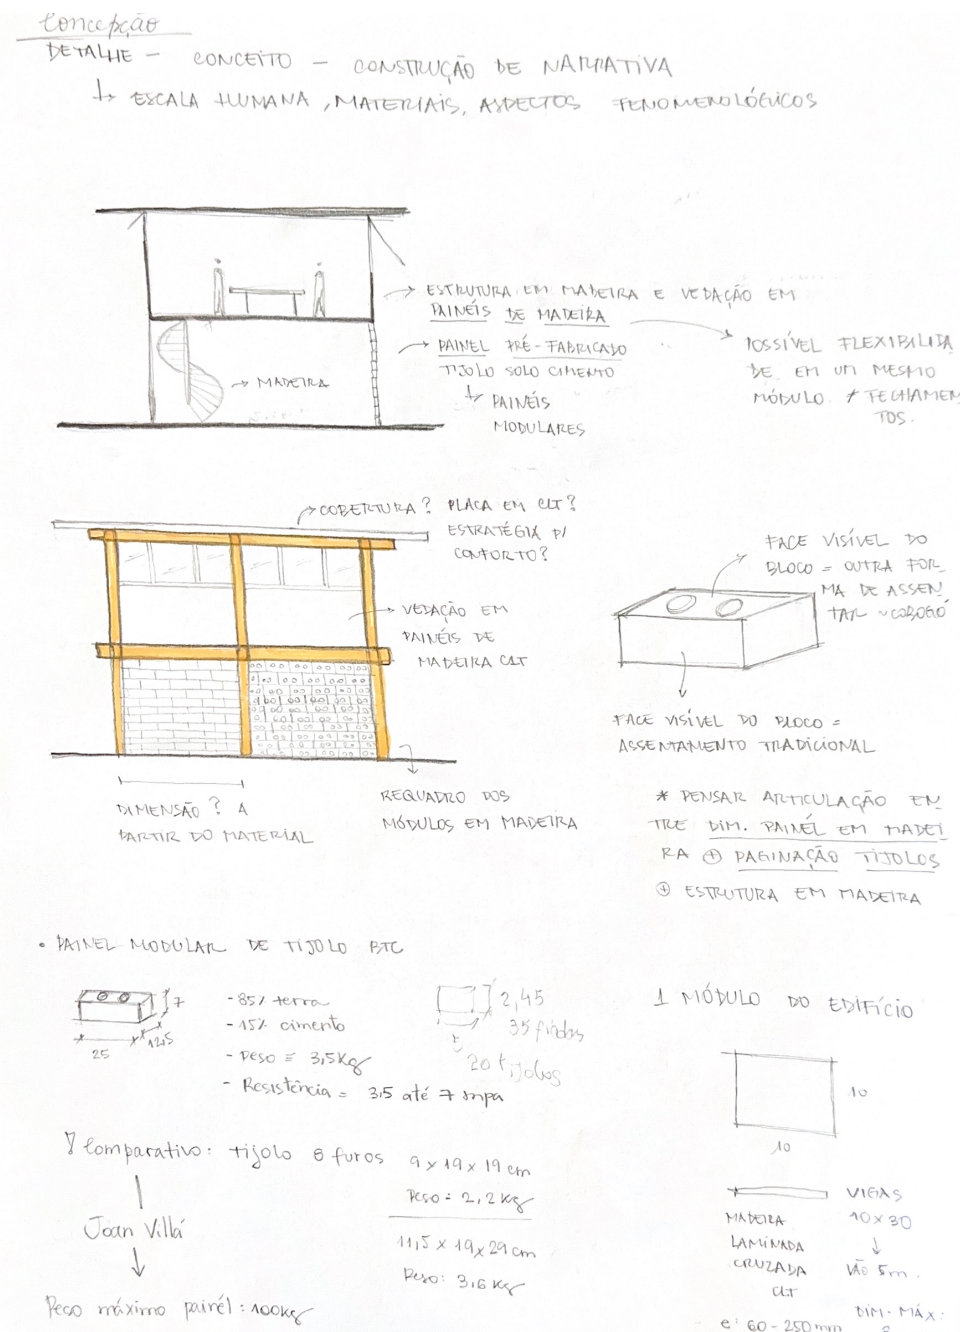 Concepção
DETALHE – CONCEITO – CONSTRUÇÃO DE NARRATIVA
↳ ESCALA HUMANA, MATERIAIS, ASPECTOS FENOMENOLÓGICOS
→ ESTRUTURA EM MADEIRA E VEDAÇÃO EM
PAINÉIS DE MADEIRA
→ PAINEL PRÉ-FABRICADO
TIJOLO SOLO CIMENTO
↳ PAINÉIS
MODULARES
POSSÍVEL FLEXIBILIDA
DE EM UM MESMO
MÓDULO. * FECHAMEN
TOS.
→ MADEIRA
→ COBERTURA? PLACA EM CLT?
ESTRATÉGIA P/
CONFORTO?
→ VEDAÇÃO EM
PAINÉIS DE
MADEIRA CLT
FACE VISÍVEL DO
BLOCO = OUTRA FOR
MA DE ASSEN
TAR ~COBOGÓ
FACE VISÍVEL DO BLOCO =
ASSENTAMENTO TRADICIONAL
DIMENSÃO? A
PARTIR DO MATERIAL
REQUADRO DOS
MÓDULOS EM MADEIRA
* PENSAR ARTICULAÇÃO EN
TRE DIM. PAINÉL EM MADEI
RA ⊕ PAGINAÇÃO TIJOLOS
⊕ ESTRUTURA EM MADEIRA
• PAINEL MODULAR DE TIJOLO BTC
7
12,5
25
- 85% terra
- 15% cimento
- Peso = 3,5kg
- Resistência = 3,5 até 7 mpa
2,45
35 fiadas
20 tijolos
1 MÓDULO DO EDIFÍCIO
10
10
Comparativo: tijolo 8 furos 9 x 19 x 19 cm
Peso = 2,2 kg
11,5 x 19 x 29 cm
Peso: 3,6 kg
Joan Villá
Peso máximo painél: 100kg
VIGAS
10x30
↓
VÃO 5m.
MADEIRA
LAMINADA
CRUZADA
CLT
e: 60 - 250 mm
DIM. MÁX: